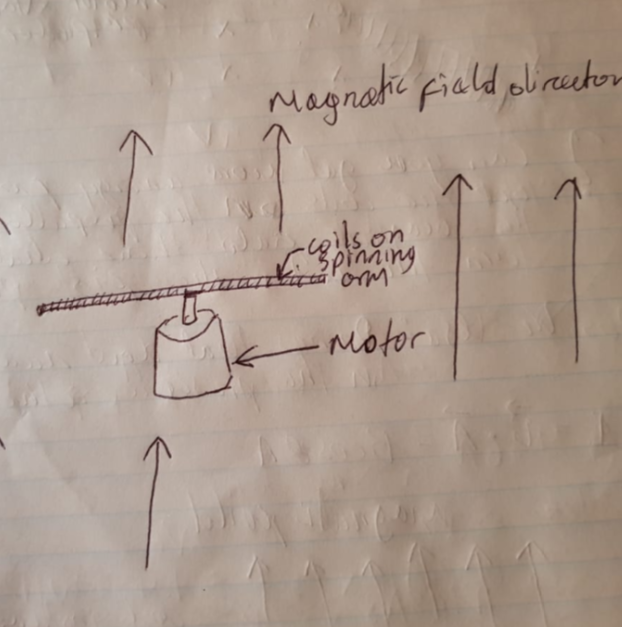 Magnetic field direction
coils on
spinning
arm
Motor